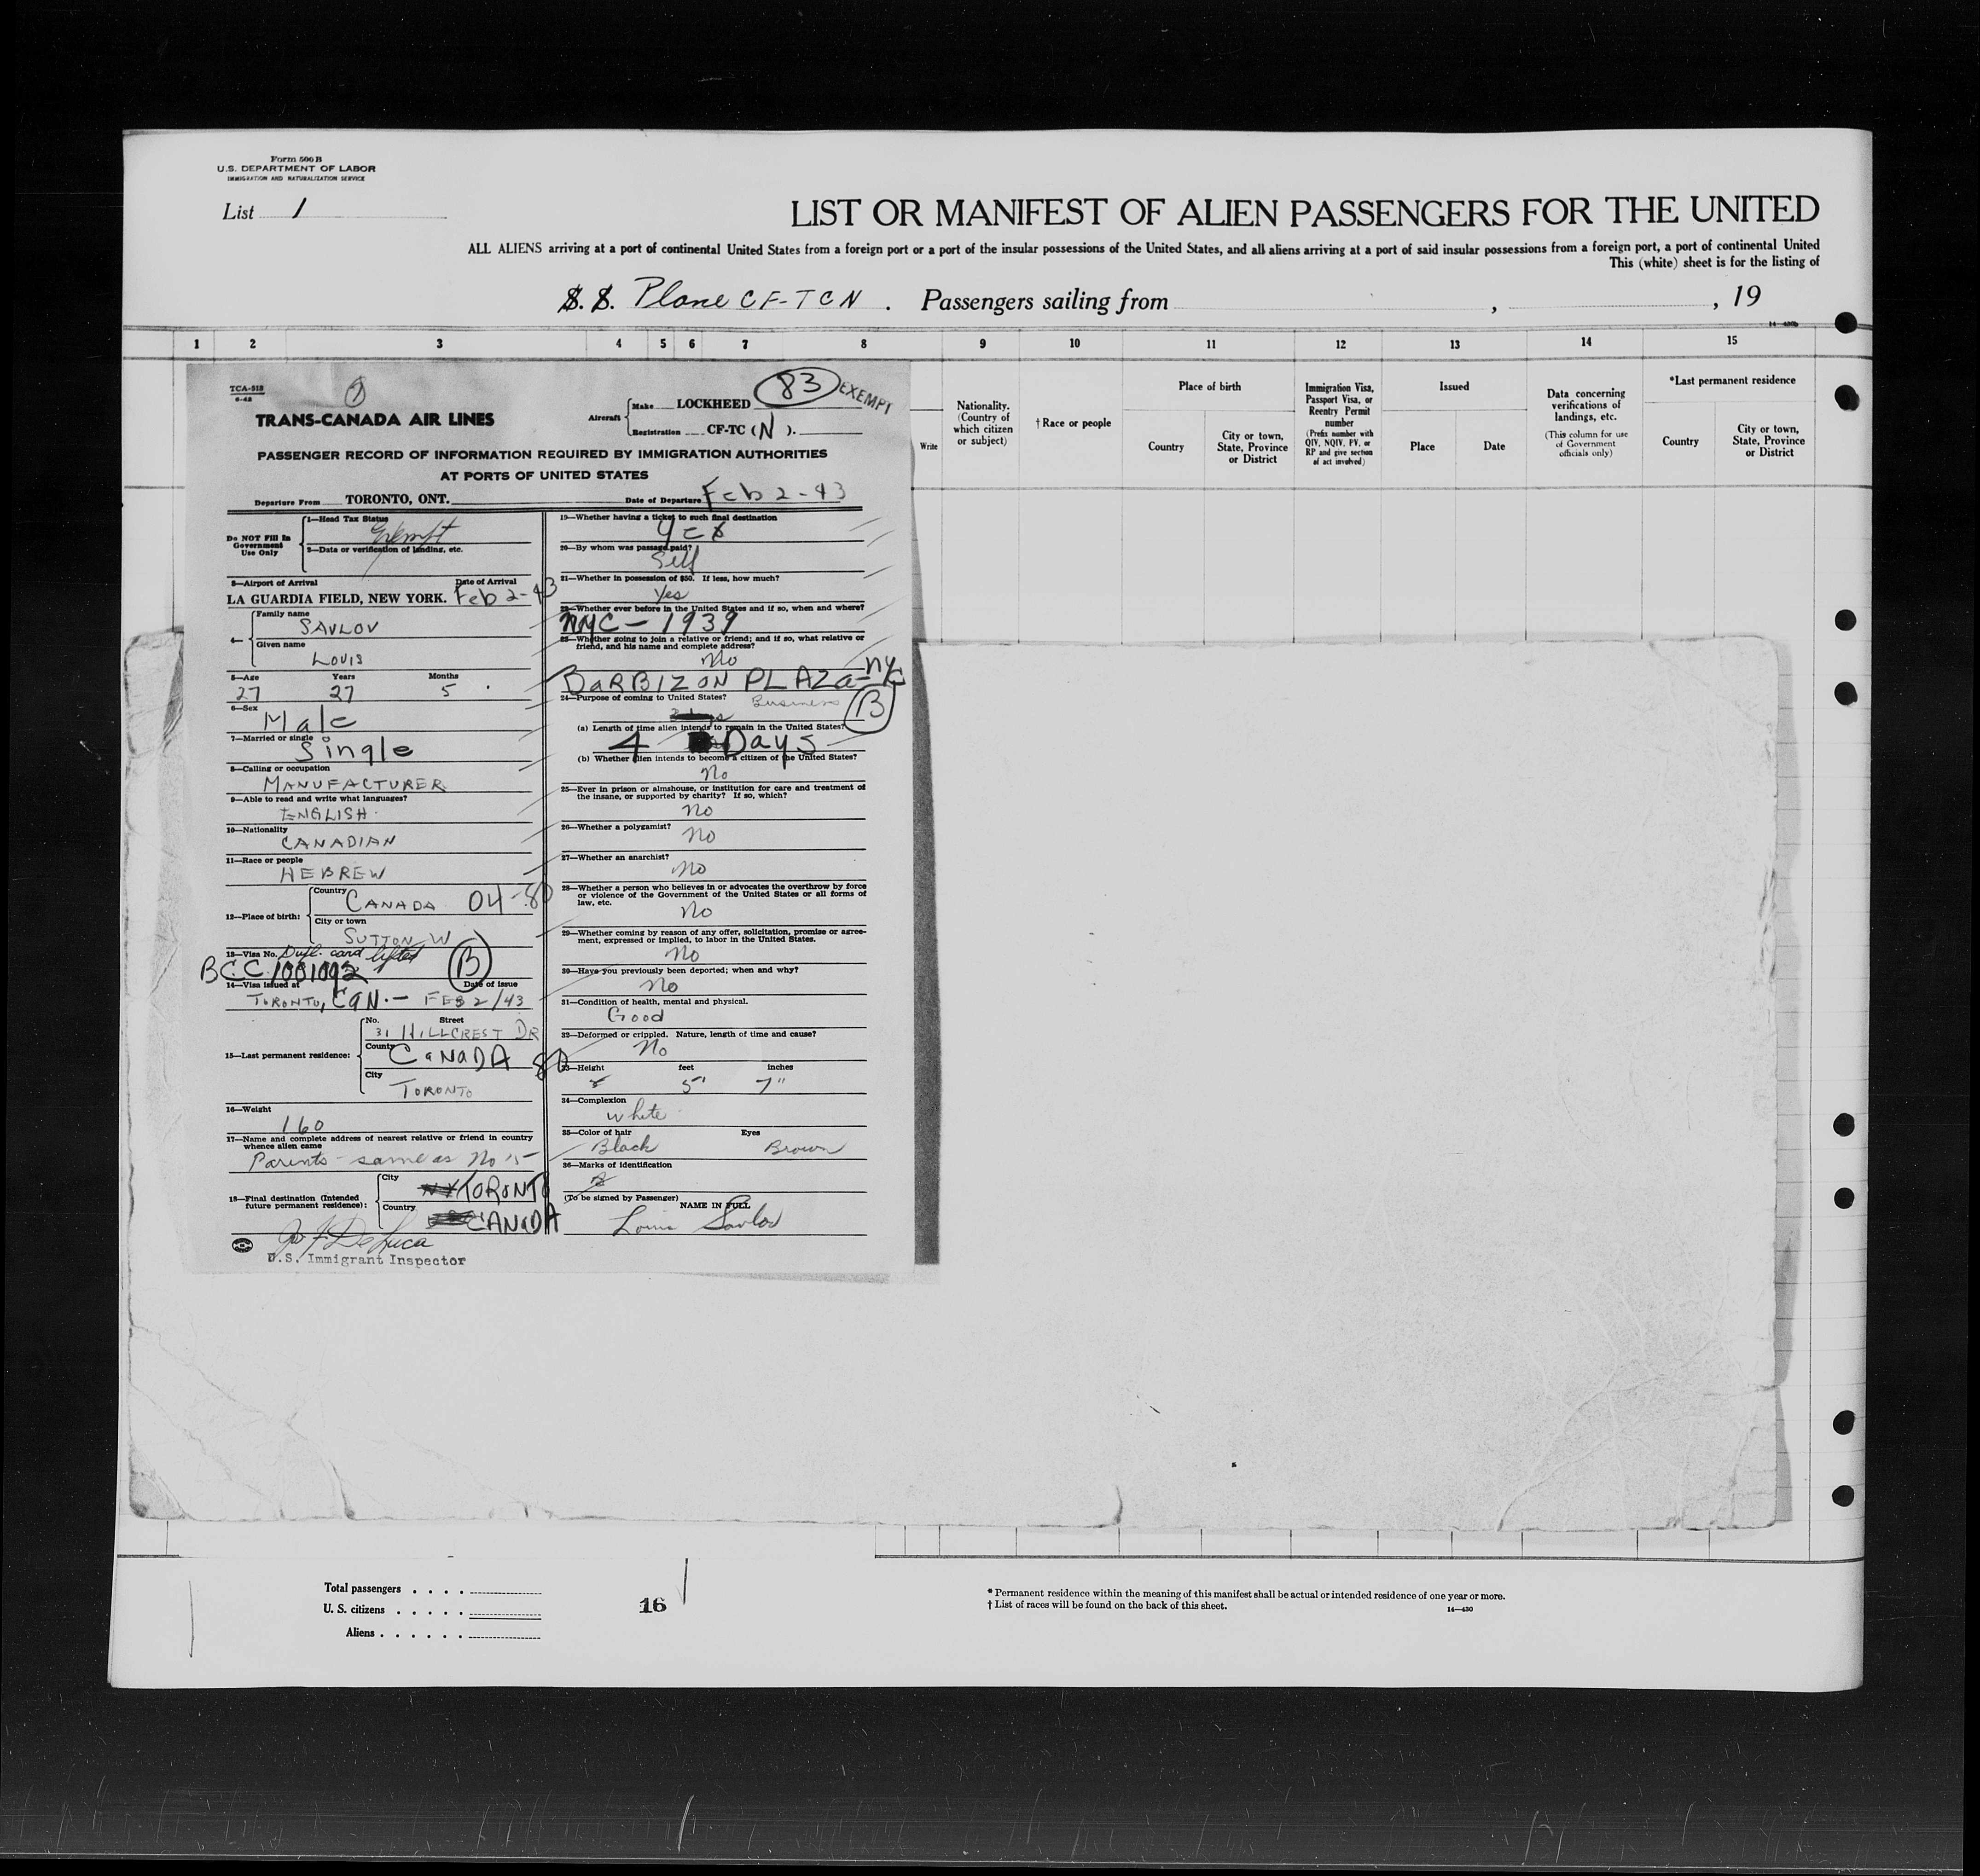 Form 500 B
U.S. DEPARTMENT OF LABOR
IMMIGRATION AND NATURALIZATION SERVICE
List 1
LIST OR MANIFEST OF ALIEN PASSENGERS FOR THE UNITED
ALL ALIENS arriving at a port of continental United States from a foreign port or a port of the insular possessions of the United States, and all aliens arriving at a port of said insular possessions from a foreign port, a port of continental United
This (white) sheet is for the listing of
S. S. Plane CF-TCN . Passengers sailing from , , 19
1 2 3 4 5 6 7 8 9 10 11 12 13 14 15
Write
Nationality. (Country of which citizen or subject)
† Race or people
Place of birth
Country
City or town, State, Province or District
Immigration Visa, Passport Visa, or Reentry Permit number
(Prefix number with QIV, NQIV, PV, or RP and give section of act involved)
Issued
Place
Date
Data concerning verifications of landings, etc.
(This column for use of Government officials only)
*Last permanent residence
Country
City or town, State, Province or District
TCA-518
6-42
83
EXEMPT
TRANS-CANADA AIR LINES
Aircraft
Make LOCKHEED
Registration CF-TC (N).
PASSENGER RECORD OF INFORMATION REQUIRED BY IMMIGRATION AUTHORITIES
AT PORTS OF UNITED STATES
Departure From TORONTO, ONT. Date of Departure Feb 2-43
Do NOT Fill In Government Use Only
1—Head Tax Status
Exempt
2—Data or verification of landing, etc.
3—Airport of Arrival Date of Arrival
LA GUARDIA FIELD, NEW YORK. Feb 2-43
4—
Family name
SAVLOV
Given name
LOUIS
5—Age Years Months
27 27 5
6—Sex
Male
7—Married or single
Single
8—Calling or occupation
MANUFACTURER
9—Able to read and write what languages?
ENGLISH
10—Nationality
CANADIAN
11—Race or people
HEBREW
12—Place of birth:
Country
CANADA 04-80
City or town
SUTTON W
13—Visa No. Dupl. card lifted
BCC 1001092 B
14—Visa issued at Date of issue
TORONTO, CAN.- FEB 2/43
15—Last permanent residence:
No. Street
31 HILLCREST DR
County
CANADA 80
City
TORONTO
16—Weight
160
17—Name and complete address of nearest relative or friend in country whence alien came
Parents - same as No 15
18—Final destination (Intended future permanent residence):
City
TORONTO
Country
CANADA
De Luca
U.S. Immigrant Inspector
19—Whether having a ticket to such final destination
yes
20—By whom was passage paid?
Self
21—Whether in possession of $50. If less, how much?
Yes
22—Whether ever before in the United States and if so, when and where?
NYC - 1939
23—Whether going to join a relative or friend; and if so, what relative or friend, and his name and complete address?
No
BARBIZON PLAZA - NYC
24—Purpose of coming to United States?
Business B
(a) Length of time alien intends to remain in the United States?
4 Days
(b) Whether alien intends to become a citizen of the United States?
No
25—Ever in prison or almshouse, or institution for care and treatment of the insane, or supported by charity? If so, which?
No
26—Whether a polygamist?
No
27—Whether an anarchist?
No
28—Whether a person who believes in or advocates the overthrow by force or violence of the Government of the United States or all forms of law, etc.
No
29—Whether coming by reason of any offer, solicitation, promise or agreement, expressed or implied, to labor in the United States.
No
30—Have you previously been deported; when and why?
No
31—Condition of health, mental and physical.
Good
32—Deformed or crippled. Nature, length of time and cause?
No
33—Height feet inches
5' 7"
34—Complexion
white
35—Color of hair Eyes
Black Brown
36—Marks of identification
(To be signed by Passenger)
NAME IN FULL
Louis Savlov
Total passengers . . . .
U. S. citizens . . . . .
Aliens . . . . . .
16
* Permanent residence within the meaning of this manifest shall be actual or intended residence of one year or more.
† List of races will be found on the back of this sheet.
14—430